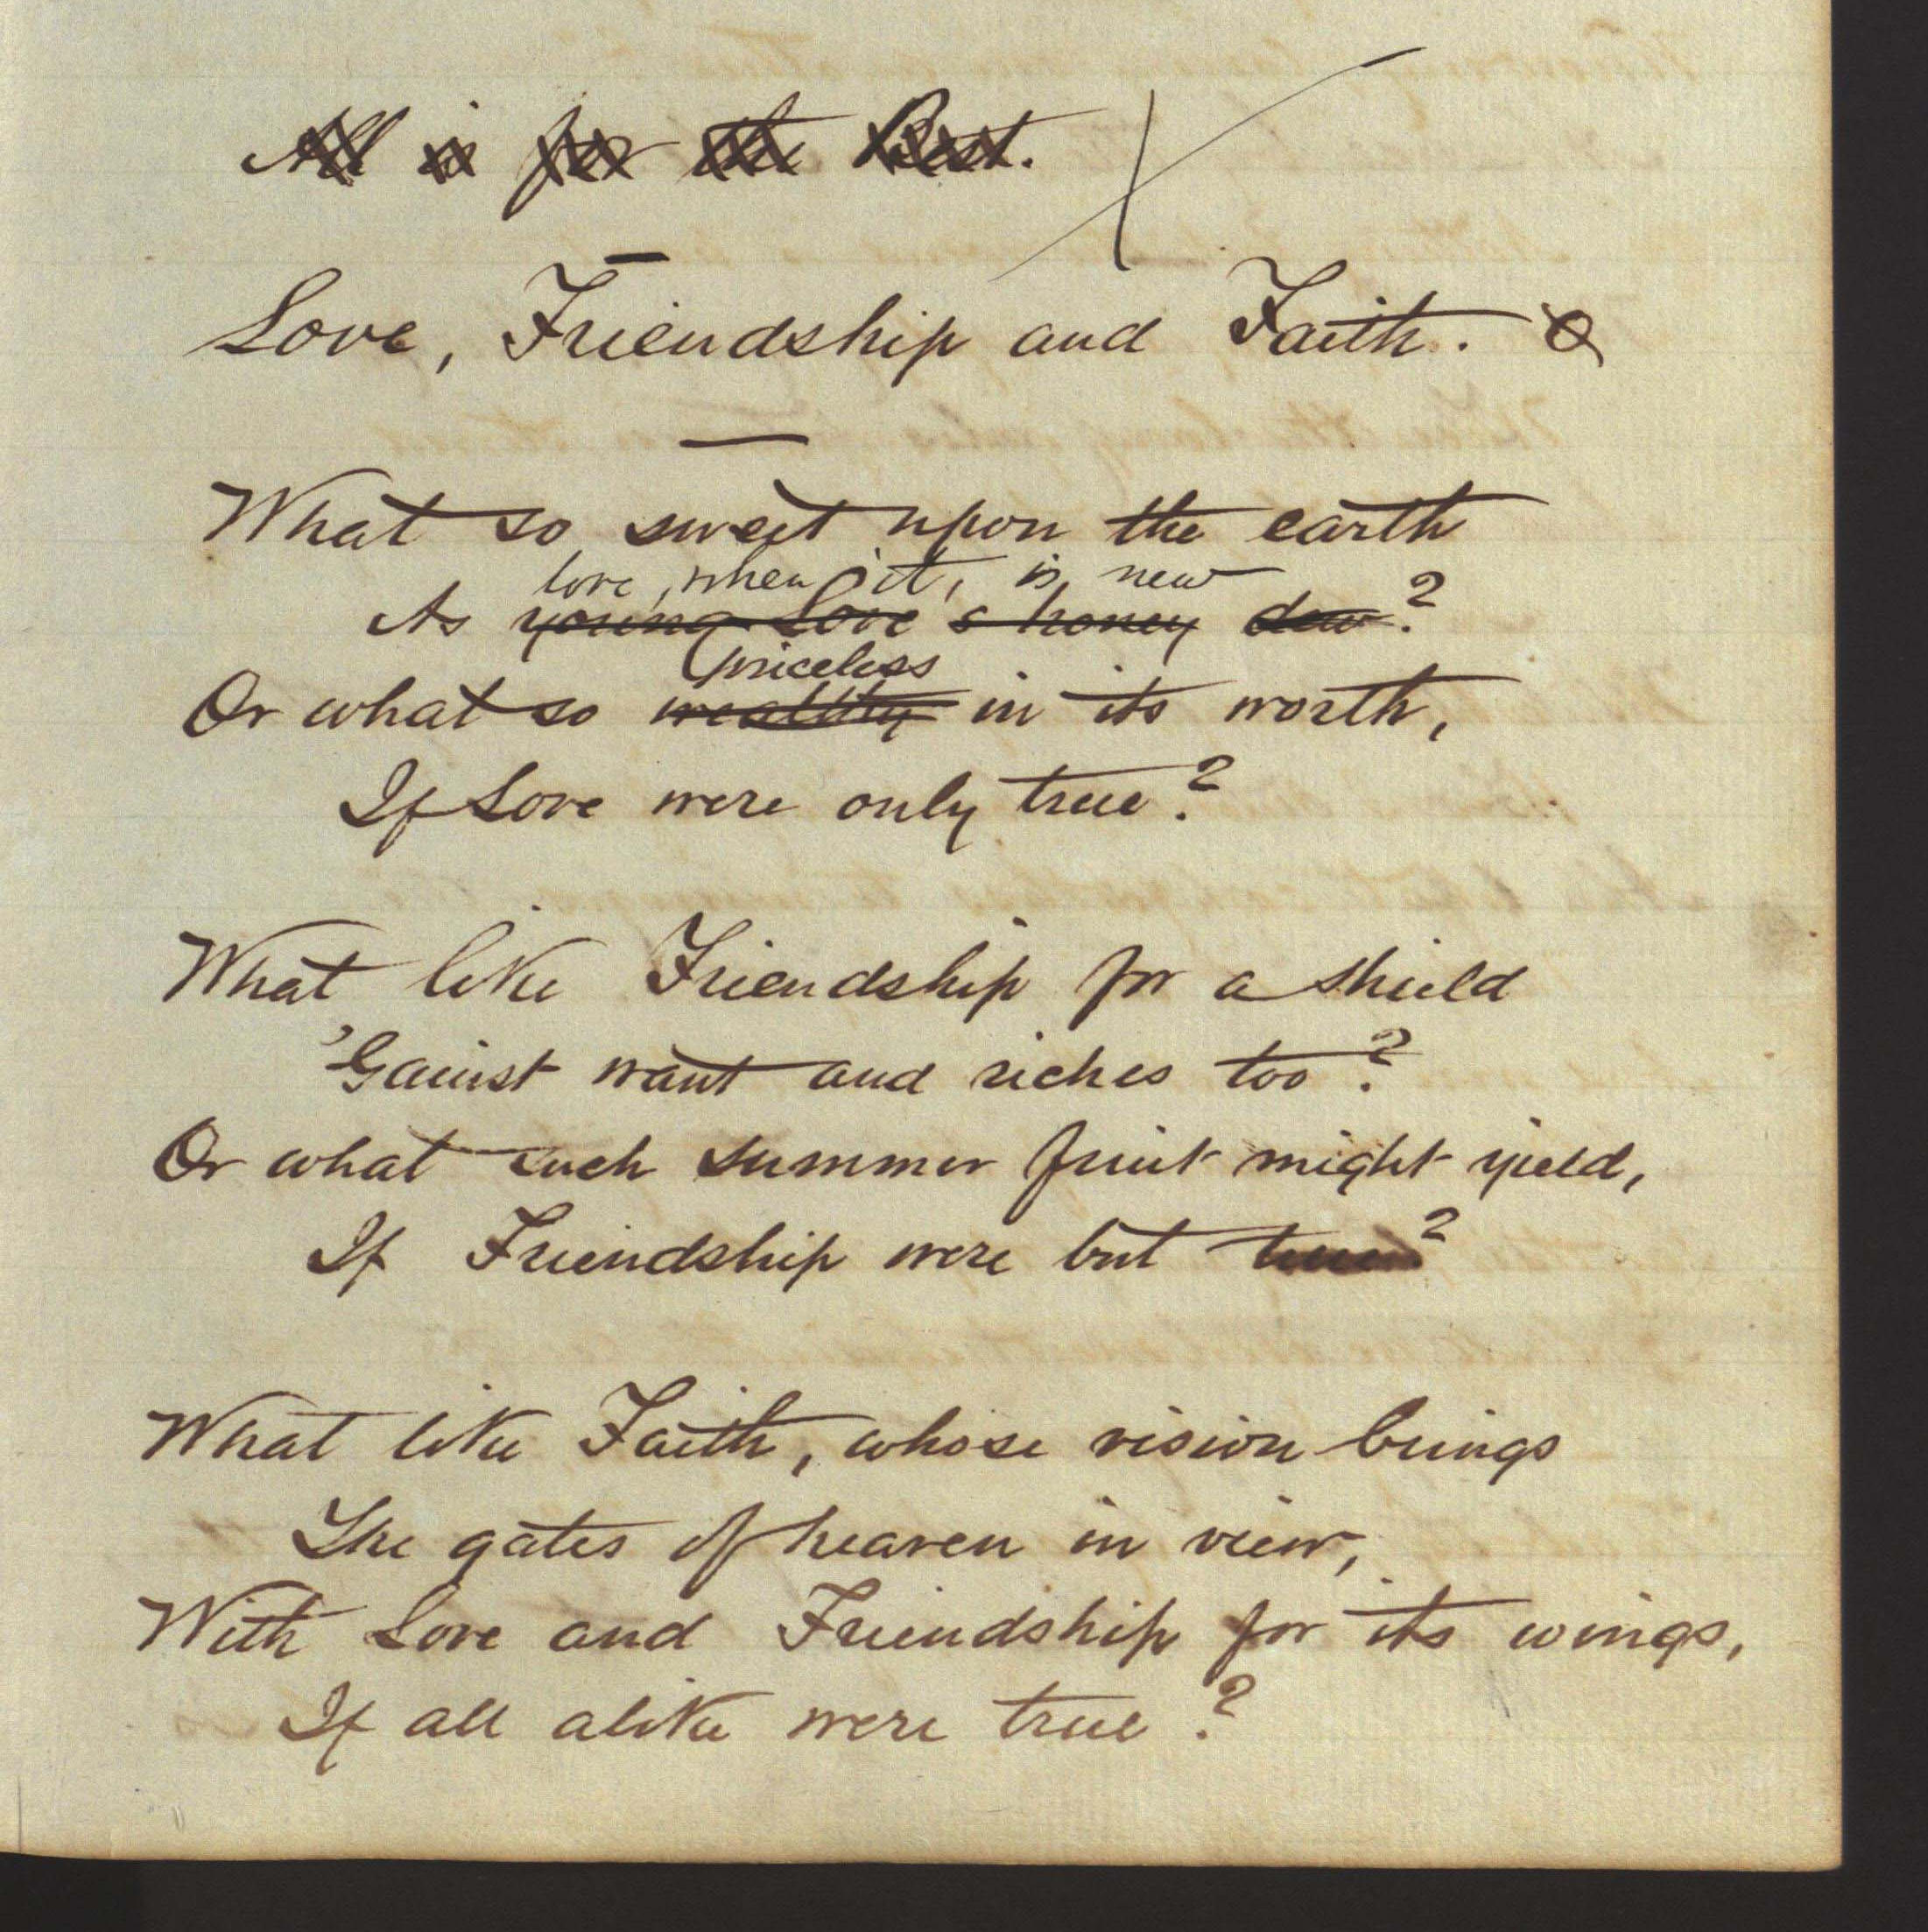 All is for the Best.
Love, Friendship and Faith.
What so sweet upon the earth
love, when it, is, new
As young Love's honey dew?
priceless
Or what so wealthy in its worth,
If Love were only true?
What like Friendship for a shield
'Gainst want and riches too?
Or what such summer fruit might yield,
If Friendship were but true?
What like Faith, whose vision brings
The gates of heaven in view,
With Love and Friendship for its wings,
If all alike were true?